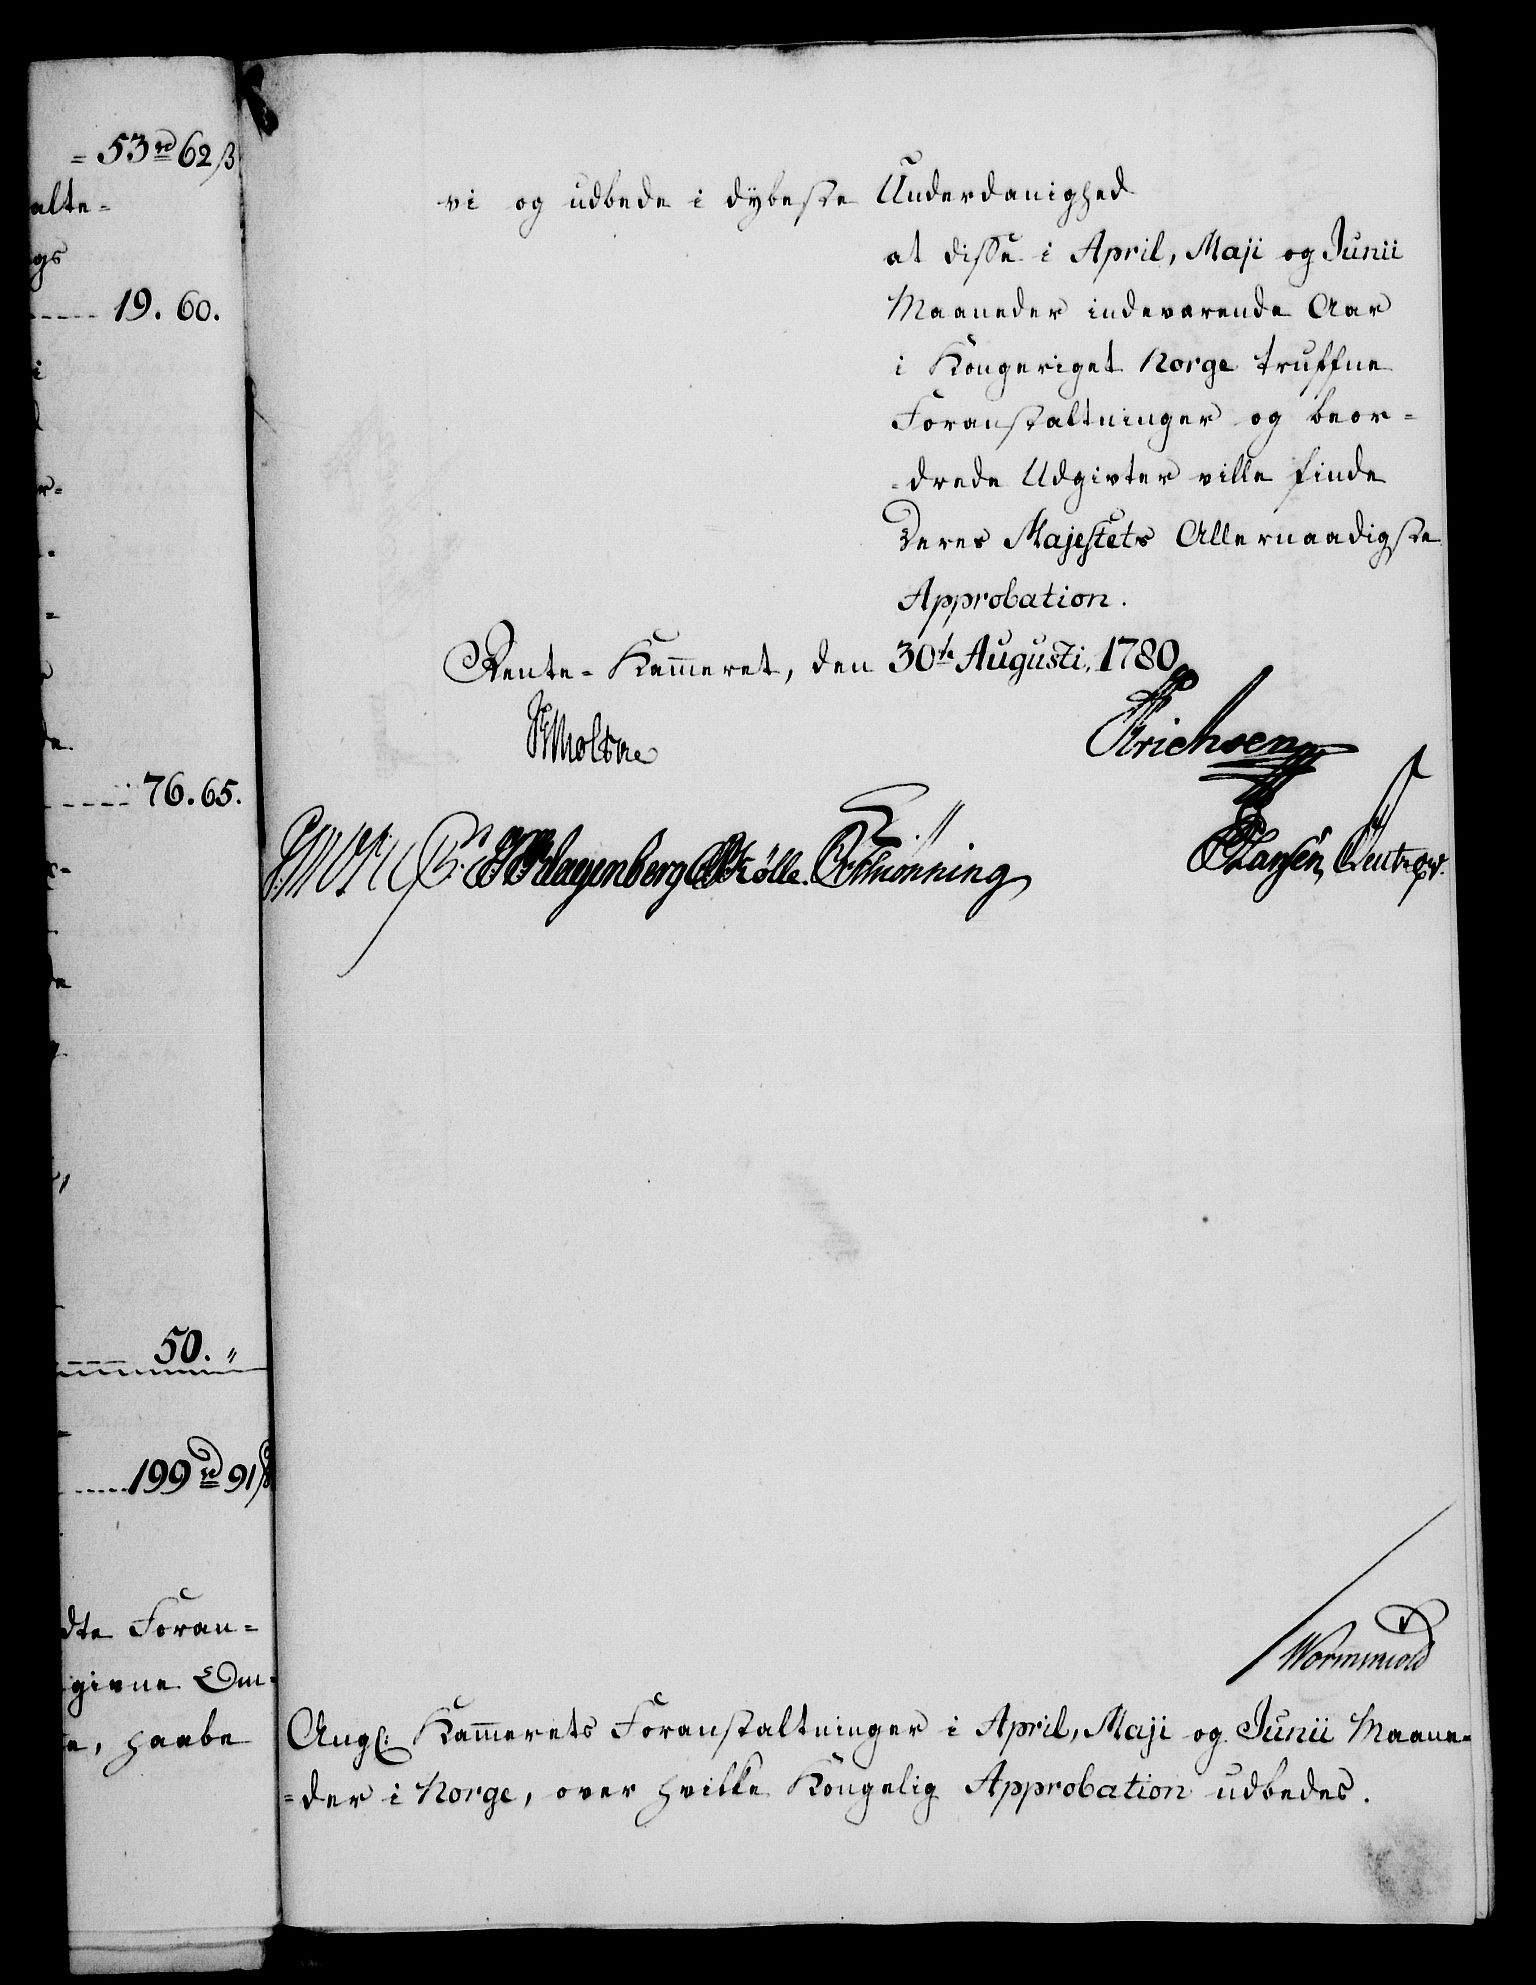 = 53 rd 62 β
alte-
gs
19. 60.
76. 65.
50. "
199 rd 91 β
dte Foran=
givne Om-
e, haabe
vi og udbede i dybeste Underdanighed
at disse i April, Maji og Junii
Maaneder indeværende Aar
i Kongeriget Norge truffne
Foranstaltninger og beor=
=drede Udgivter ville finde
Deres Majestets Allernaadigste
Approbation.
Rente-Kam̄eret, den 30te Augusti, 1780
Moltke Erichsen
Klagenberg Kølle. Schmonning Hansen
Wormskiold
Ang: Kam̄erets Foranstaltninger i April, Maji og Junii Maane=
=der i Norge, over hvilke Kongelig Approbation udbedes.